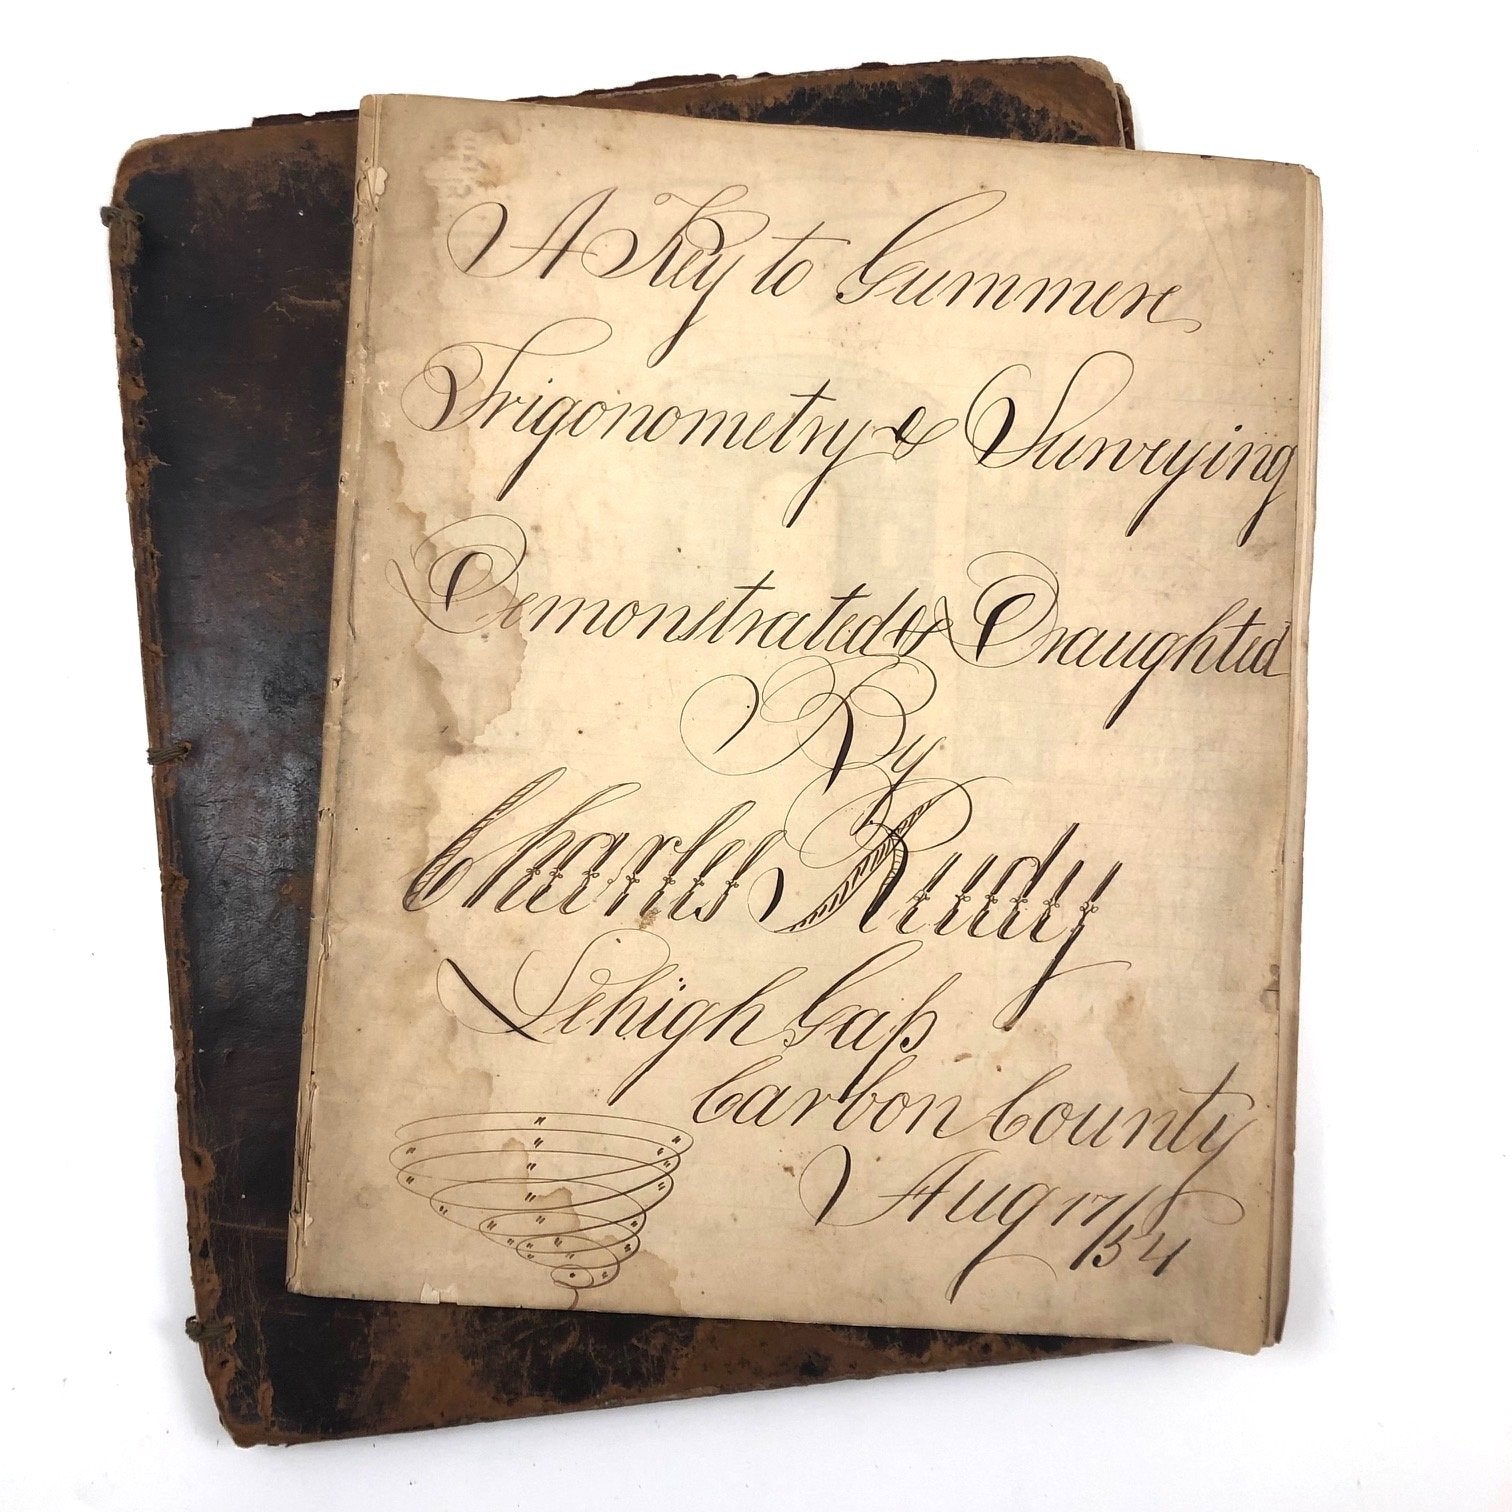 A Key to Gummere
Trigonometry & Surveying
Demonstrated & Draughted
By
Charles Rudy
Lehigh Gap
Carbon County
Aug 17/54